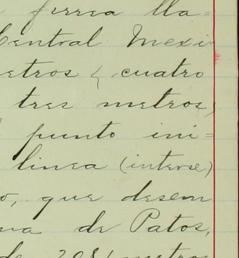 ferrea lla=
Central Mexi
etros ( cuatro
tres metros)
punto ini=
linea (interse)
o, que desem
na de Patos,
de 205( metros